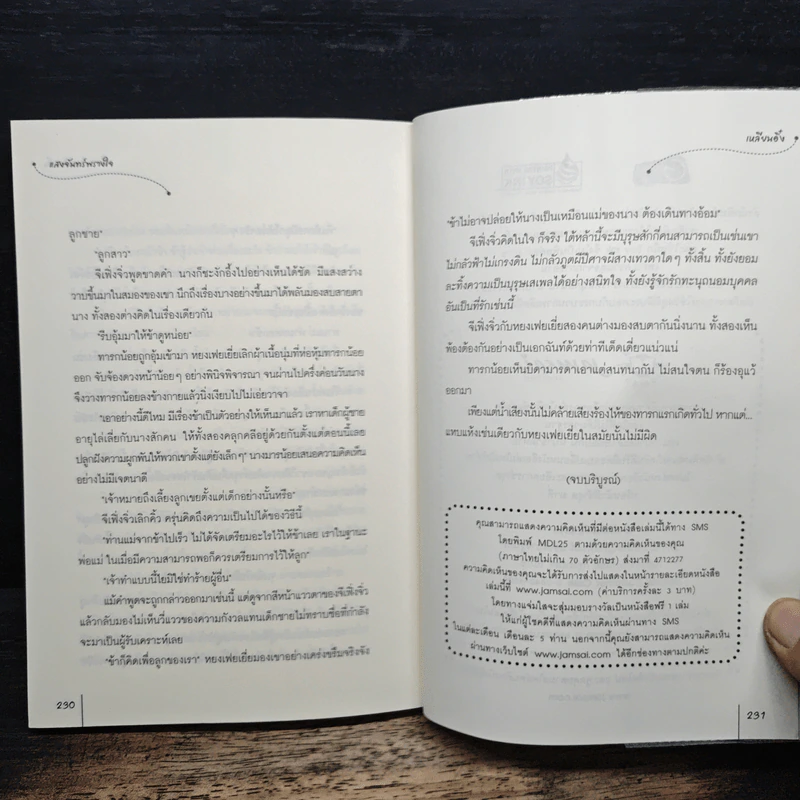 แสงจันทร์พรางใจ
ลูกชาย"
"ลูกสาว"
จีเพิ่งจิ่วพูดขาดคำ นางก็ชะงักอึ้งไปอย่างเห็นได้ชัด มีแสงสว่าง
วาบขึ้นมาในสมองของเขา นึกถึงเรื่องบางอย่างขึ้นมาได้พลันมองสบสายตา
นาง ทั้งสองต่างคิดในเรื่องเดียวกัน
"รีบอุ้มมาให้ข้าดูหน่อย"
ทารกน้อยถูกอุ้มเข้ามา หยงเฟยเยี่ยเลิกผ้าเนื้อนุ่มที่ห่อหุ้มทารกน้อย
ออก จับจ้องดวงหน้าน้อยๆ อย่างพินิจพิจารณา จนผ่านไปครึ่งค่อนวันนาง
จึงวางทารกน้อยลงข้างกายแล้วนิ่งเงียบไปไม่เอ่ยวาจา
"เอาอย่างนี้ดีไหม มีเรื่องข้าเป็นตัวอย่างให้เห็นมาแล้ว เราหาเด็กผู้ชาย
อายุไล่เลี่ยกับนางสักคน ให้ทั้งสองคลุกคลีอยู่ด้วยกันตั้งแต่ตอนนี้เลย
ปลูกฝังความผูกพันให้พวกเขาตั้งแต่ยังเล็กๆ" นางมารน้อยเสนอความคิดเห็น
อย่างไม่มีเจตนาดี
"เจ้าหมายถึงเลี้ยงลูกเขยตั้งแต่เด็กอย่างนั้นหรือ"
จีเพิ่งจิ่วเลิกคิ้ว ครุ่นคิดถึงความเป็นไปได้ของวิธีนี้
"ท่านแม่จากข้าไปเร็ว ไม่ได้จัดเตรียมอะไรไว้ให้ข้าเลย เราในฐานะ
พ่อแม่ ในเมื่อมีความสามารถพอก็ควรตระเตรียมการไว้ให้ลูก"
"เจ้าทำแบบนี้ไยมิใช่ทำร้ายผู้อื่น"
แม้คำพูดจะถูกกล่าวออกมาเช่นนี้ แต่ดูจากสีหน้าแววตาของจีเพิ่งจิ่ว
แล้วกลับมองไม่เห็นวี่แววของความกังวลแทนเด็กชายไม่ทราบชื่อที่กำลัง
จะมาเป็นผู้รับเคราะห์เลย
"ข้าก็คิดเพื่อลูกของเรา" หยงเฟยเยี่ยมองเขาอย่างเคร่งขรึมจริงจัง
230
เหลียนอิ๋ง
"ข้าไม่อาจปล่อยให้นางเป็นเหมือนแม่ของนาง ต้องเดินทางอ้อม"
จีเพิ่งจิ่วคิดในใจ ก็จริง ใต้หล้านี้จะมีบุรุษสักกี่คนสามารถเป็นเช่นเขา
ไม่กลัวฟ้าไม่เกรงดิน ไม่กลัวภูตผีปีศาจผีสางเทวดาใดๆ ทั้งสิ้น ทั้งยังยอม
ละทิ้งความเป็นบุรุษเสเพลได้อย่างสนิทใจ ทั้งยังรู้จักรักทะนุถนอมบุคคล
อันเป็นที่รักเช่นนี้
จีเพิ่งจิ่วกับหยงเฟยเยี่ยสองคนต่างมองสบตากันนิ่งนาน ทั้งสองเห็น
พ้องต้องกันอย่างเป็นเอกฉันท์ด้วยท่าทีเด็ดเดี่ยวแน่วแน่
ทารกน้อยเห็นบิดามารดาเอาแต่สนทนากัน ไม่สนใจตน ก็ร้องอุแว้
ออกมา
เพียงแต่น้ำเสียงนั้นไม่คล้ายเสียงร้องไห้ของทารกแรกเกิดทั่วไป หากแต่...
แหบแห้งเช่นเดียวกับหยงเฟยเยี่ยในสมัยนั้นไม่มีผิด
(จบบริบูรณ์)
คุณสามารถแสดงความคิดเห็นที่มีต่อหนังสือเล่มนี้ได้ทาง SMS
โดยพิมพ์ MDL25 ตามด้วยความคิดเห็นของคุณ
(ภาษาไทยไม่เกิน 70 ตัวอักษร) ส่งมาที่ 4712277
ความคิดเห็นของคุณจะได้รับการส่งไปแสดงในหน้ารายละเอียดหนังสือ
เล่มนี้ที่ www.jamsai.com (ค่าบริการครั้งละ 3 บาท)
โดยทางแจ่มใสจะสุ่มมอบรางวัลเป็นหนังสือฟรี 1 เล่ม
ให้แก่ผู้โชคดีที่แสดงความคิดเห็นผ่านทาง SMS
ในแต่ละเดือน เดือนละ 5 ท่าน นอกจากนี้คุณยังสามารถแสดงความคิดเห็น
ผ่านทางเว็บไซต์ www.jamsai.com ได้อีกช่องทางตามปกติค่ะ
231